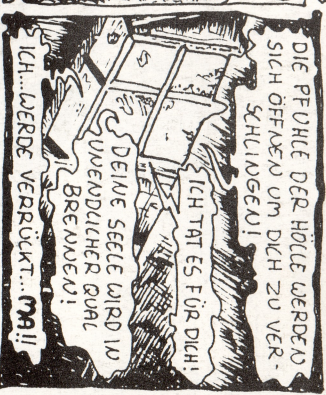 DIE PFUHLE DER HÖLLE WERDEN
SICH ÖFFNEN UM DICH ZU VER-
SCHLINGEN!
ICH TAT ES FÜR DICH!
DEINE SEELE WIRD IN
UNENDLICHER QUAL
BRENNEN!
ICH... WERDE VERRÜCKT... MA!!